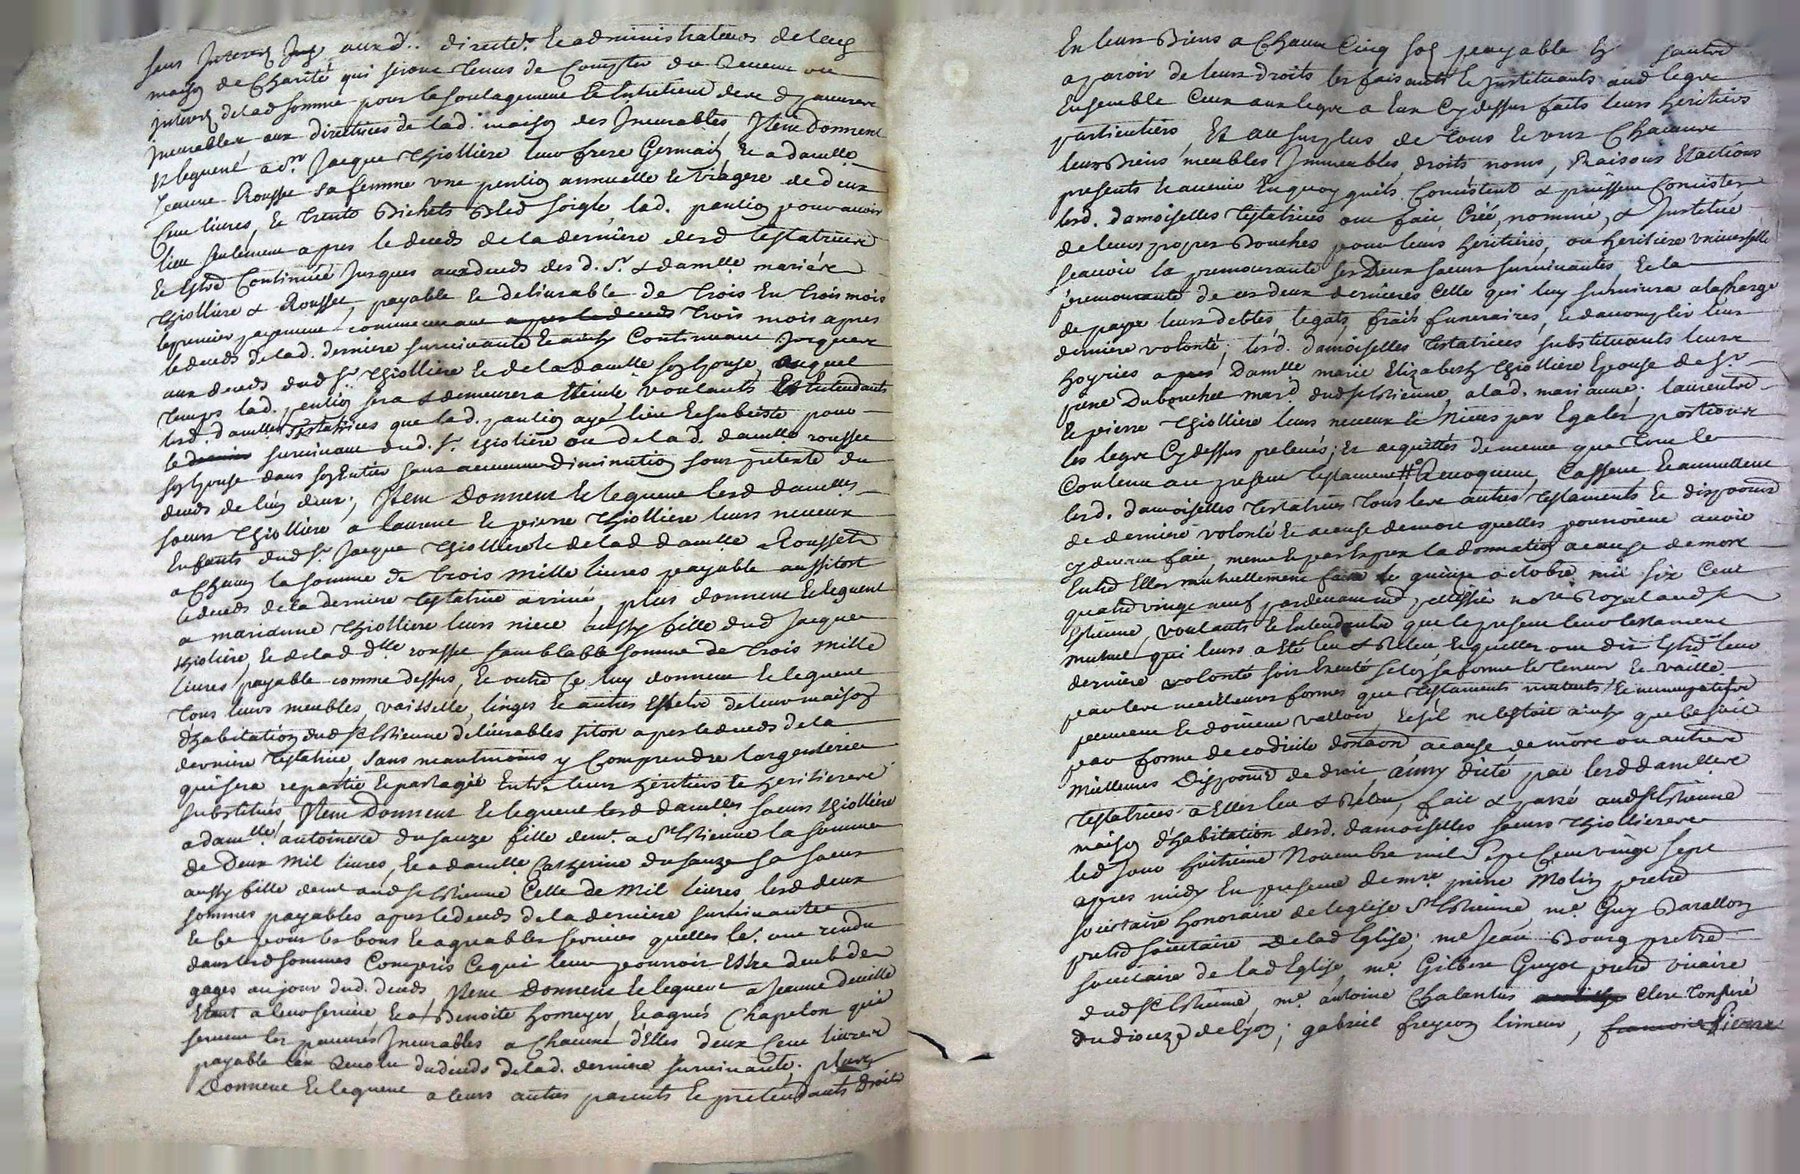 sans Interest aux d. direct.rs & administrateurs de lad
maison de Charité qui seront tenus de Compter du Revenu ou
interest de lad somme pour le soulagement & Entretient de ce d pauvres
Incurables aux directrices de lad. maison des Incurables, Item donnent
& leguent a Sr. Jacque Thiolliere leur frere Germain, & a damlle
Jeanne Rousset sa femme une pention annuelle & viagere de deux
Cent livres, & trente Bichets Bled soigle, lad. pention pour avoir
lieu seulement apres le deceds de la derniere desd testatrices
& Estre Continuée Jusques aux deceds des d. Sr. & damlle mariés
Thiolliere & Rousset, payable & delivrable de trois En trois mois
le premier payement commencant apres le deceds trois mois apres
le deceds de lad. derniere survivante & ainsy Continuant Jusques
aux deceds dud Sr. Thiolliere & de lad damlle son Epouse, auquel
temps lad. pention sera & demeurera Eteinte voulants & Entendants
lesd. damlles testatrices que lad. pention aye lieu & subsiste pour
le dernier survivant dud. Sr. Thioliere ou de lad. damlle rousset
son Epouse dans son Entier sans aucune diminution sous pretexte du
deceds de l'un deux; Item donnent & leguent lesd damlles
soeurs Thiolliere a laurent & pierre Thiolliere leurs neveux
Enfants dud Sr. Jacque Thiolliere & de lad damlle Rousset
a Chacun la somme de trois mille livres payable aussitost
le deceds de la derniere testatrice arrivé, plus donnent & leguent
a marianne Thiolliere leurs niece aussy fille dud Jacque
Thioliere, & de lad dlle rousset semblable somme de trois mille
livres payable comme dessus, & outre ce luy donnent & leguent
tous leurs meubles, vaisselle, linges & autres Effets de leur maison
d'habitation dud St Estienne delivrables sitost apres le deceds de la
derniere testatrice, sans neantmoins y Comprendre largenterie
qui sera repartie & partagée Entre leurs heritiers & heritieres
substitués, Item donnent & leguent lesd damlles soeurs Thiolliere
a damlle antoinette dusauze fille demt. a St Estienne la somme
de Deux Mil livres, & a damlle Catherine dusauze sa soeur
aussy fille demt aud St Estienne Celle de Mil livres lesd deux
sommes payables apres le deceds de la derniere survivante
& ce pour les bons & agreables services quelles les ont rendu
dans lesd sommes Compris ce qui leur pourroit Estre deub de
gages au jour dud. deceds, Item donnent & leguent a Jeanne deville
Etant a leur service & a Benoite homeyer, & agnés Chapelon qui
servent les pauvres Incurables a Chacune d'Elles deux Cent livres
payable l'an revolu du deceds de lad. derniere survivante. plus
Donnent & leguent a leurs autres parents & pretendants droits
En leurs Biens a Chacun Cinq sols payable
apavoir de leurs droits les faisants & Instituants aud legat
Ensemble Ceux aux legats a Eux Cy dessus faits leurs heritiers
particuliers, Et au surplus de tous & uns Chacuns
leurs Biens meubles Immeubles, droits noms, Raisons & actions
presents & avenir En quoy quils Consistent & puissent Consister
lesd. damoiselles testatrices ont fait Créé, nommé, & Institué
de leurs propres Bouches pour leurs heritiers, ou heritiere universelle
scavoir la premourante ses Deux soeurs survivantes, & la
premourante de ces deux dernieres Celle qui luy survivra a la charge
de payer leurs debtes legats, frais funeraires, & daccomplir leur
derniere volonté; lesd. damoiselles testatrices substituants leurs
hoyries a damlle marie Elizabeth Thiolliere Epouse de Sr.
pierre Dubouchet mard. dud St Estienne, a lad. marianne, laurent
& pierre Thiolliere leurs neveux & Nieces par Egales portions
les legats Cy dessus prelevés; & acquittés de meme que tout le
Contenu au present testament # Revoquent, Cassent & annullent
lesd. damoiselles testatrices tous les autres testaments & disposons
de derniere volonté & a cause de mort quelles pourroient avoir
cy devant fait, meme & par Exprex la donnation a cause de mort
Entre Elles mutuellement faite le quinze octobre mil six Cent
quatre vingt neuf pardevant me pellissié nore Royal aud St
Estienne, voulants & Entendants que le present leur testament
mutuel qui leurs a Eté leu & Releu, & quelles ont dit Estre leur
derniere volonté soit Executé selon sa forme & teneur & vaille
par les meilleures formes que testaments mutuels & nuncupatifs
peuvent & doivent valloir, & s'il ne Estoit ainsy que ce soit
par forme de codicile donaon a cause de mort ou autres
meilleures Disposons de droit ainsy dicté par lesd damlles
testatrices a Elles leu & Releu, fait & passé aud St Estienne
maison d'habitation desd. damoiselles soeurs Thiollieres
led jour huitieme Novembre mil Sept Cent vingt sept
apres midy En presence de mre. pierre Molin pretre
societaire honoraire de leglise St Estienne, me. Guy Barallon
pretre societaire de lad Eglise; me Jean Bourg pretre
societaire de lad Eglise, me. Gilbert Guyot pretre vicaire
dud St Estienne me. antoine Chalantus Clerc tonsuré
du dioceze de lyon; gabriel freycon limeur, francois pierre